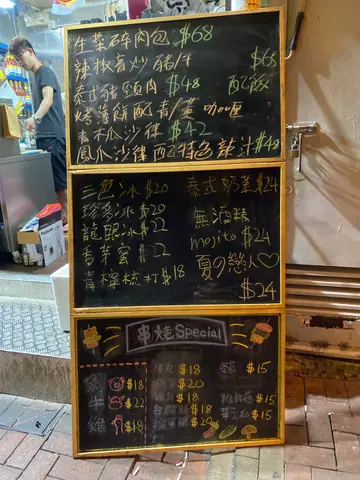 生菜碎肉包 $68
辣椒膏炒豬/牛 $68
泰式豬頸肉 $48 配飯
烤薄餅配青/黃 咖喱
青木瓜沙律 $42
鳳爪沙律配特色辣汁 $48
三色冰 $20
珍多冰 $20
龍眼冰 $22
香茅蜜 $22
青檸梳打 $18
泰式奶茶 $24
無酒精
mojito $24
夏の戀人♡
$24
串燒 Special
豬 $18
牛 $22
雞 $18
$18
$20
$18
$18
$20
$15
$15
$15